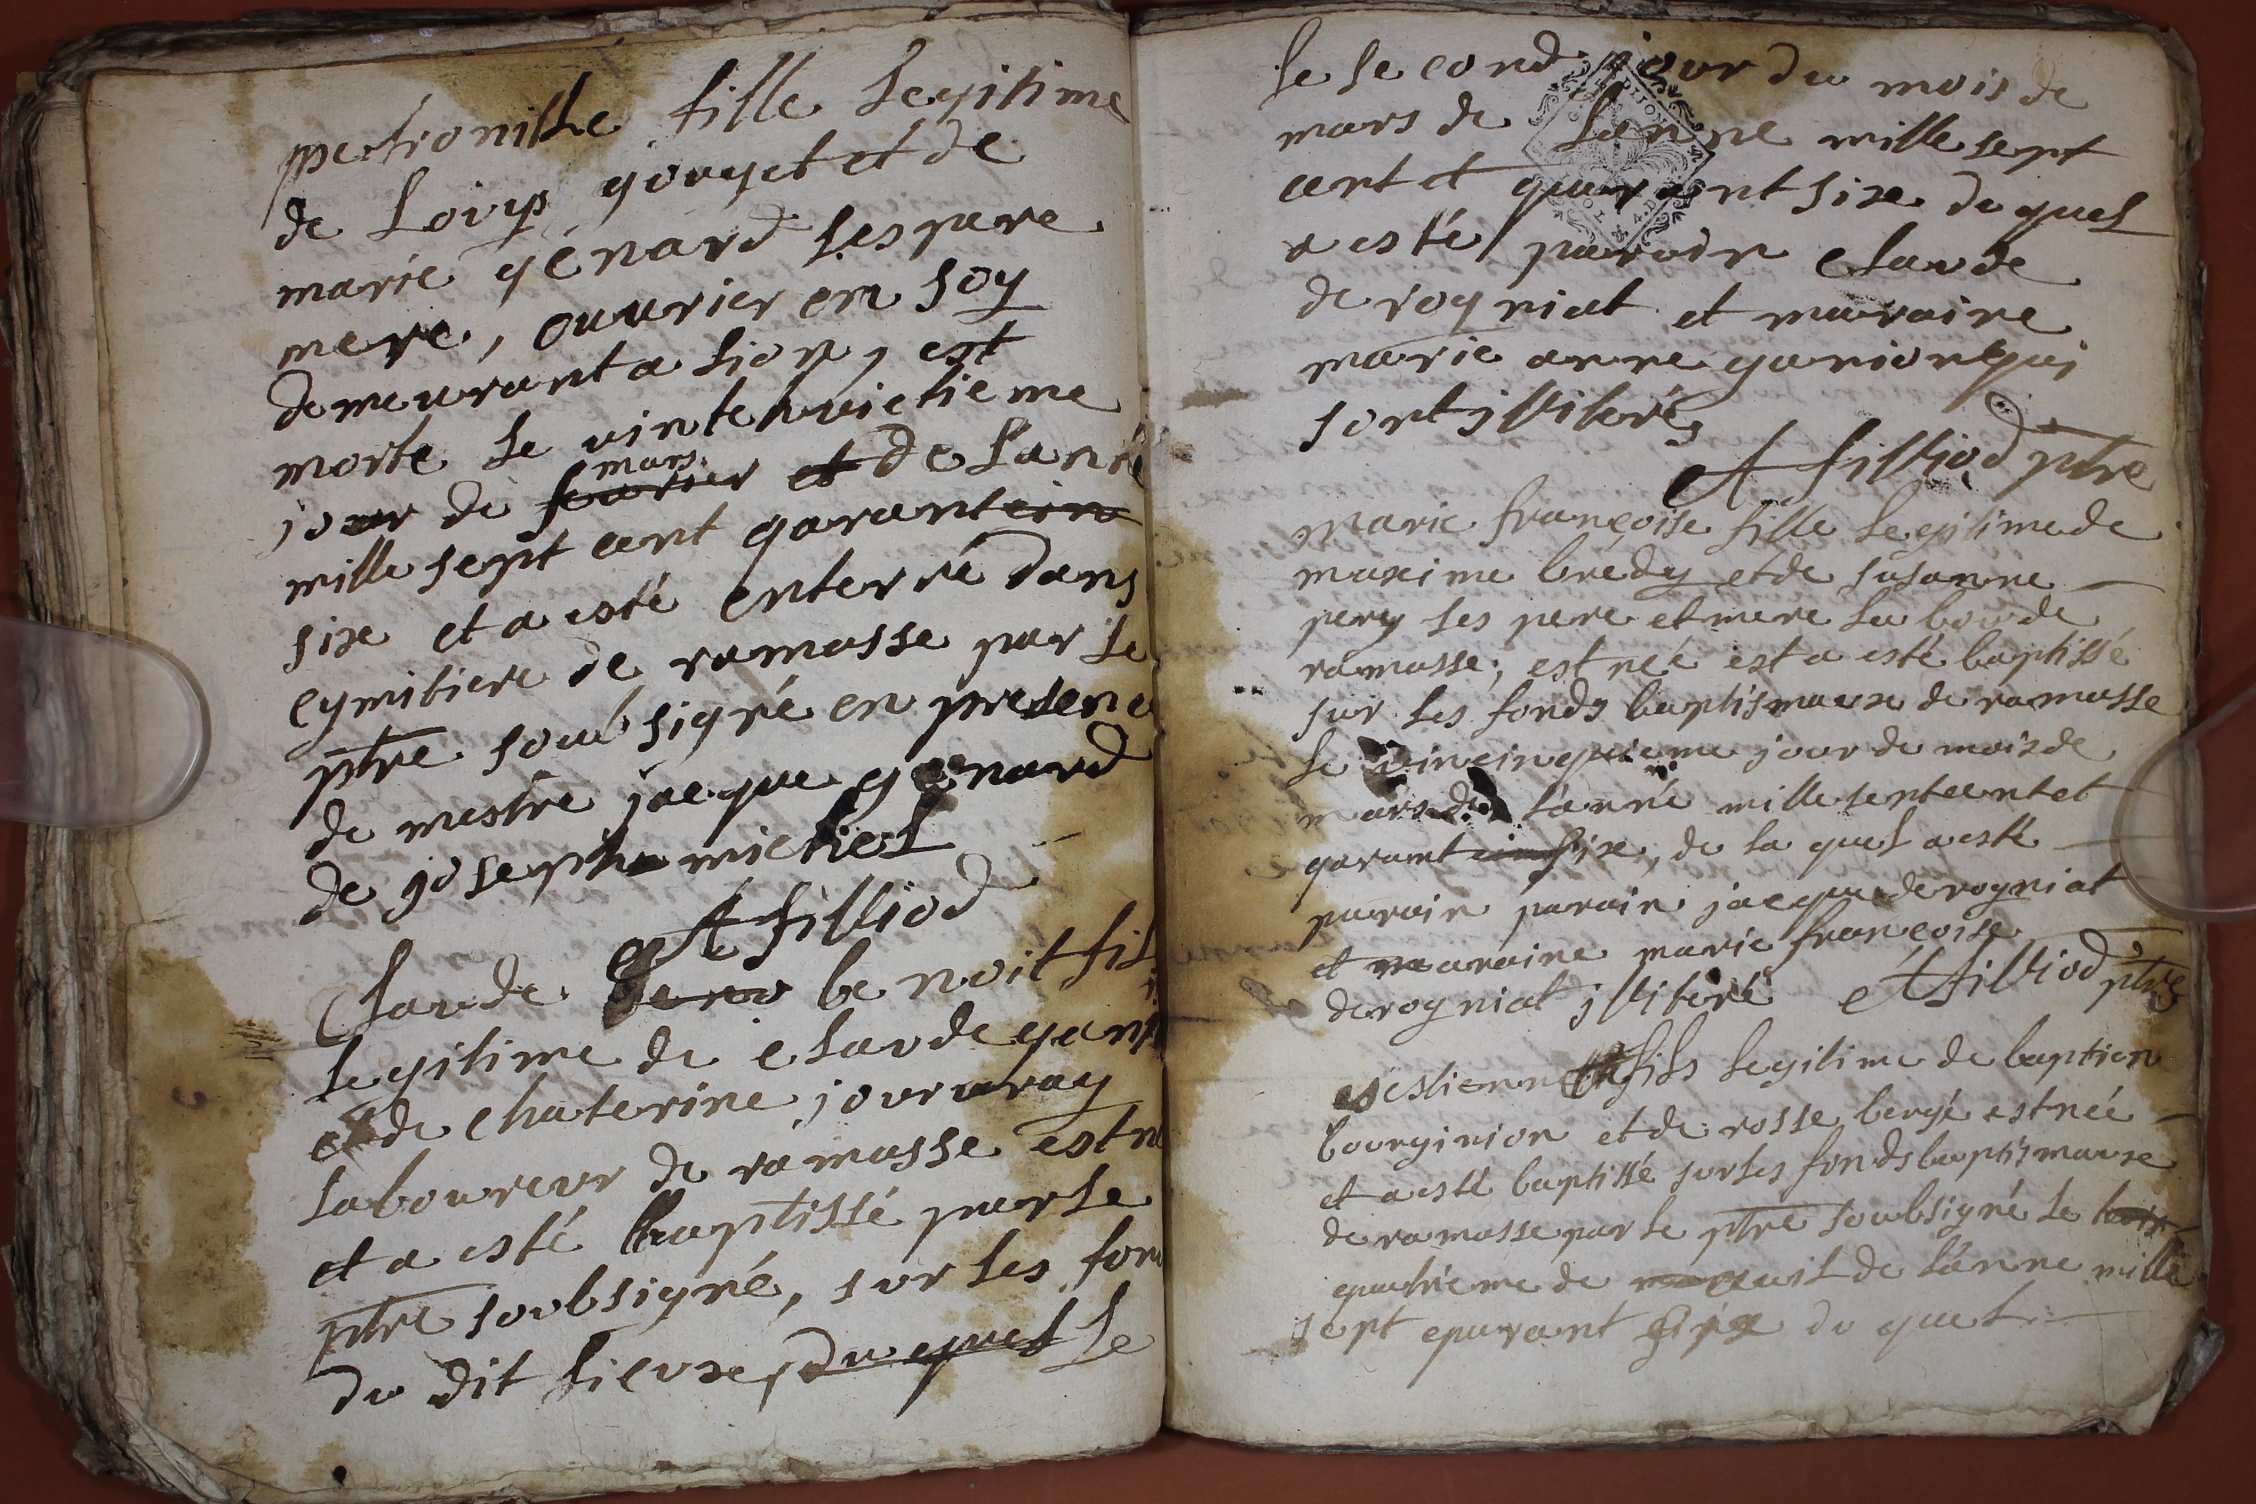 petronille fille legitime
de Loüys gouyet et de
marie génard ses pere
mere, ouurier en soy
demeurant a lion, est
morte le vintehuictieme
jour de mars feurier et de lanné
mille sept cent garant cin
sixe et a esté enterré dans
cymitiere de ramasse par le
ptre soubsigné en presence
de mestre jacque genard
de joseph michel
A filliod
Claude benoit fils
legitime de claude ganion
et de chaterine joururay
laboureur de ramasse est né
et a esté baptissé par le
ptre soubsigné, sur les fon
du dit lieuxe, du quel le
le second jour du mois de
mars de lanne mille sept
cent et quarant sixe du quel
a esté parain claude
derogniat et maraine
marie anne ganion qui
sont jlliteré
A filliod ptre
Marie françoise fille legitime de
maxime brédy et de susanne
pery ses pere et mere labou de
ramasse, est née est a esté baptissé
sur les fonds baptismauxe de ramasse
le vincinquieme jour du mois de
mars de l'anné mille sept cent et
garant cin sixe, de la quel a esté
parain parain jacque derogniat
et maraine marie françoise
derogniat jlliteré A filliod ptre
estienne fils legitime de baption
bourginion et de rosse bergé est née
et a esté baptissé sur les fonds baptismauxe
de ramasse par le ptre soubsigné le trois
quatrieme de auril de l'anne mille
sept quarant sixe du quel